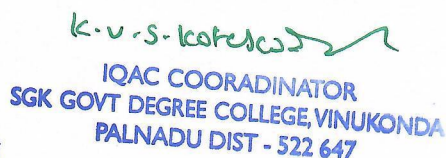 K.V.S.
IQAC COORADINATOR
SGK GOVT DEGREE COLLEGE, VINUKONDA
PALNADU DIST - 522 647